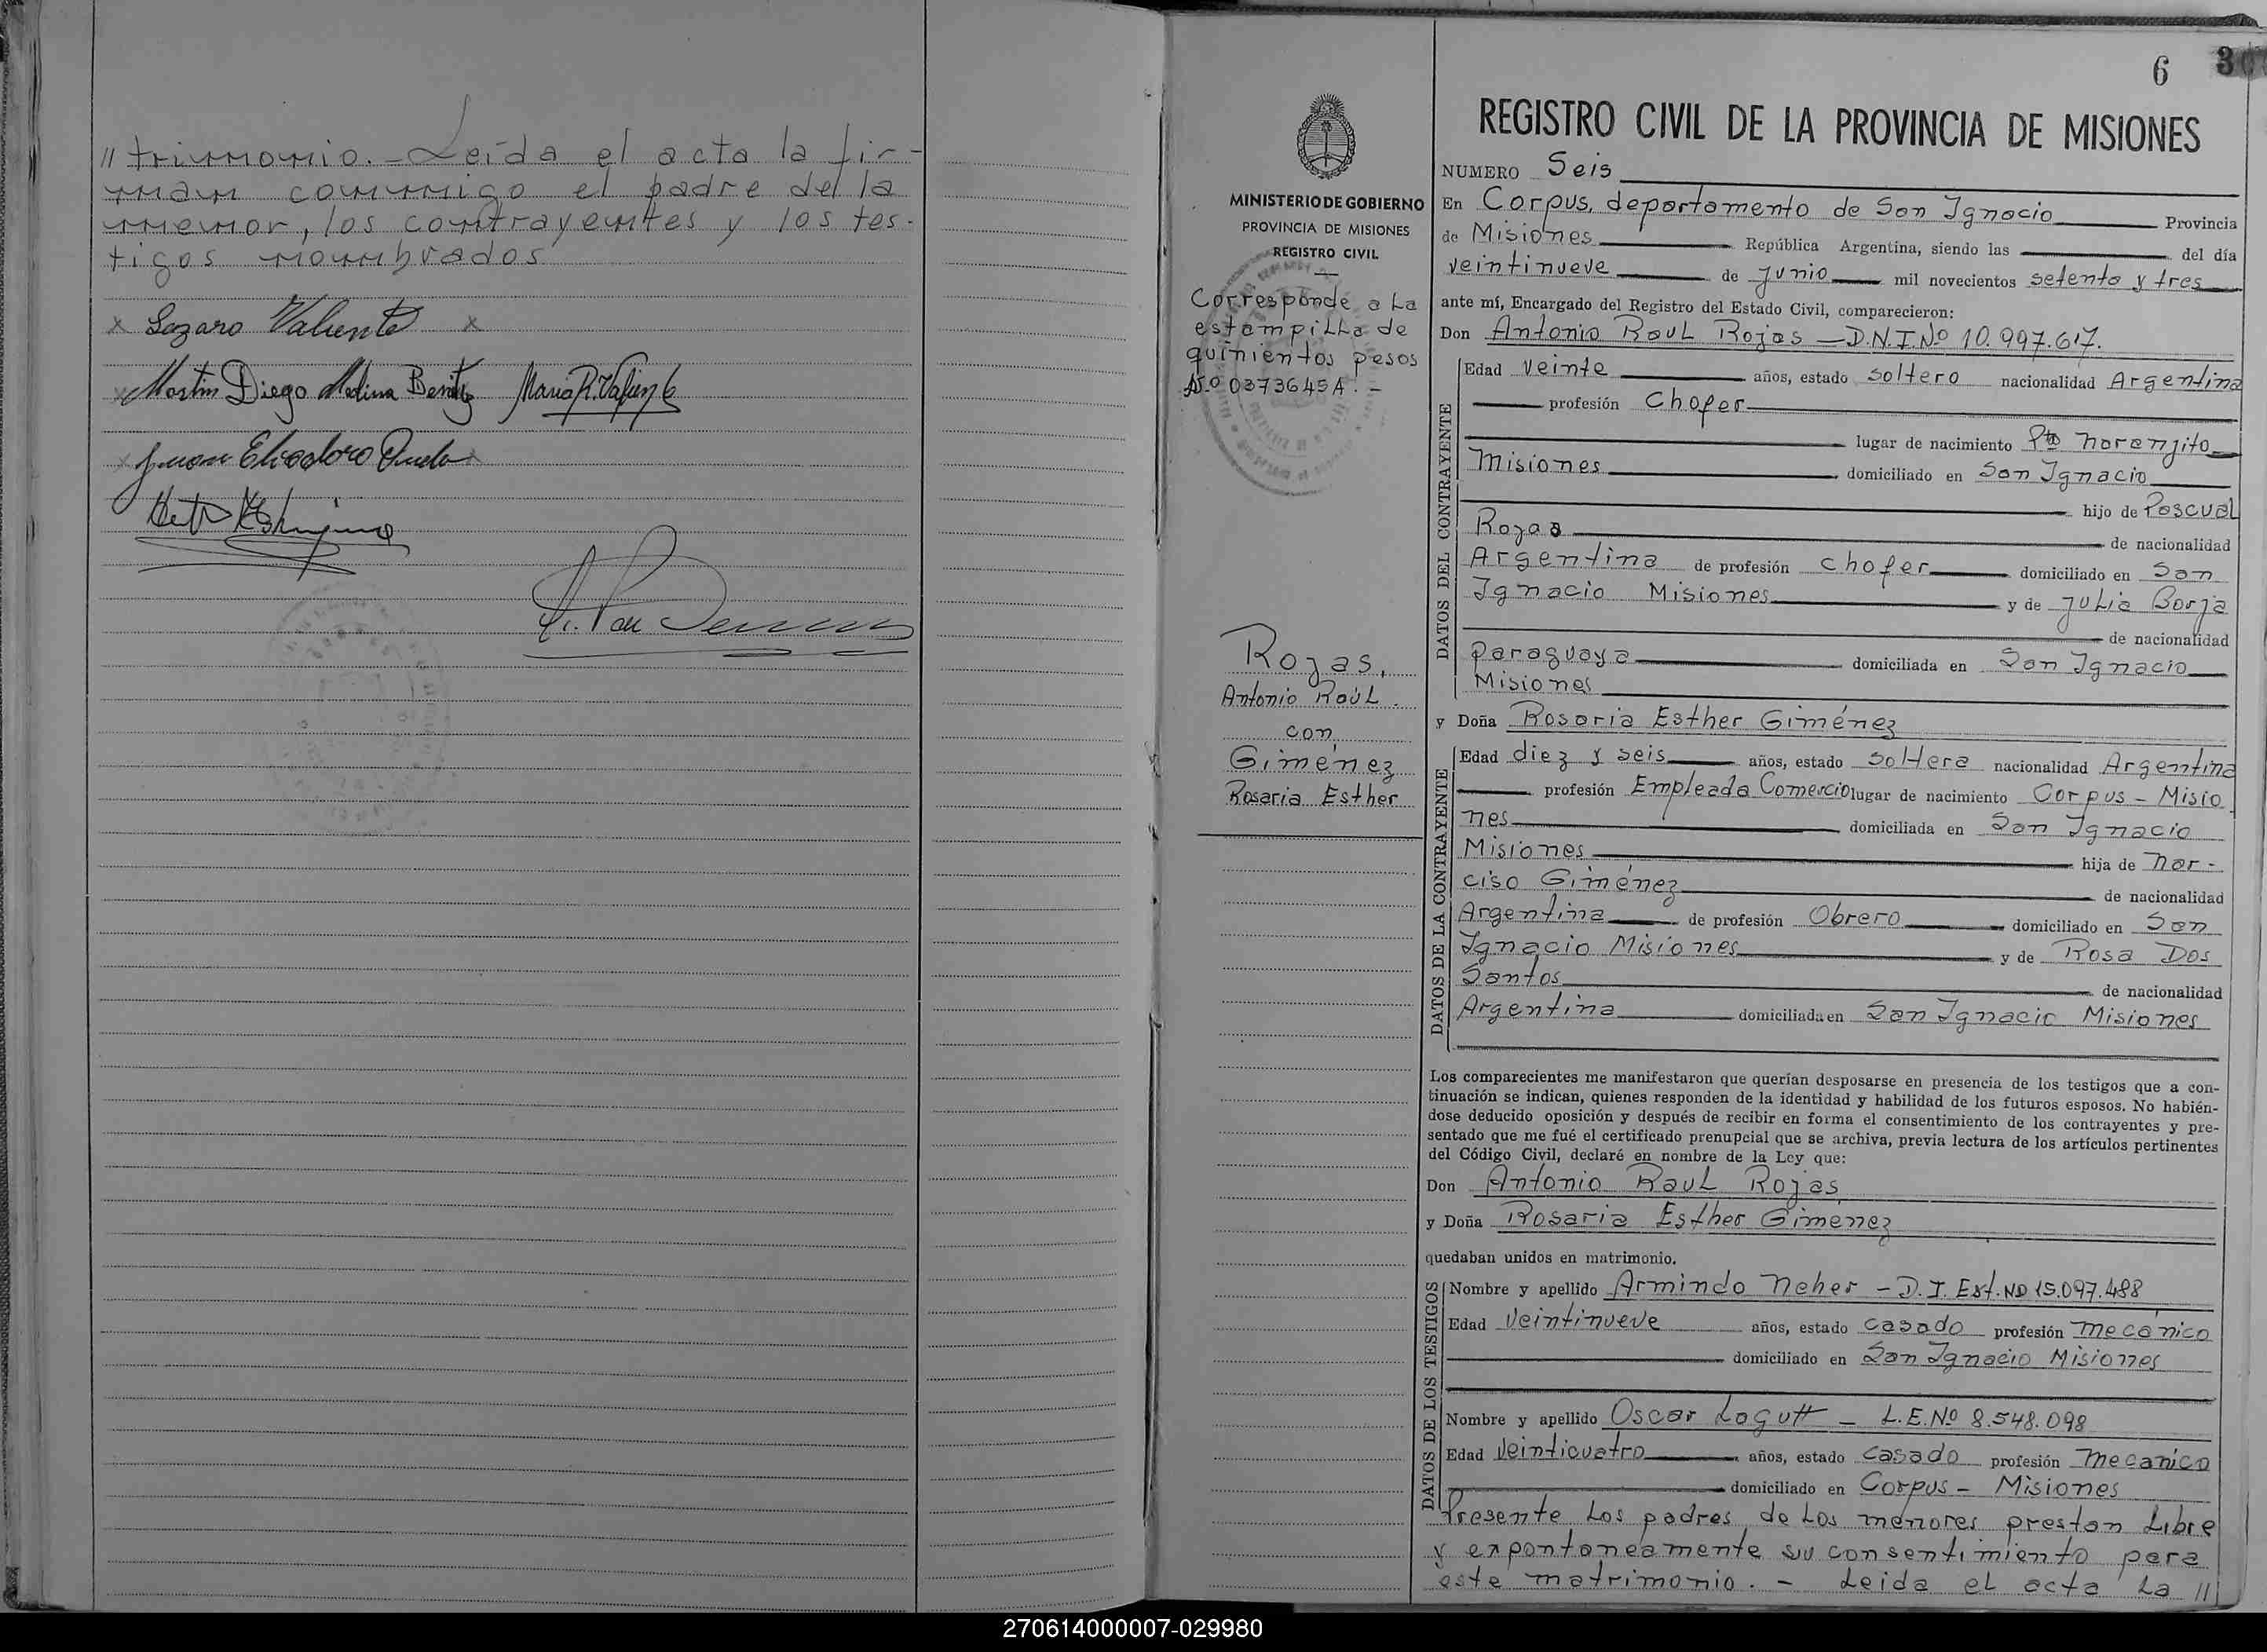 // trimonio. - Leída el acta la fir-
man conmigo el padre de la
menor, los contrayentes y los tes-
tigos nombrados
x Lazaro Valiente x
x Martin Diego Medina Benitez Maria R. Valiente
x Juan Eliodoro
6
REGISTRO CIVIL DE LA PROVINCIA DE MISIONES
MINISTERIO DE GOBIERNO
PROVINCIA DE MISIONES
REGISTRO CIVIL
Corresponde a La
estampilla de
quinientos pesos
Nº 0373645A. -
Rojas,
Antonio Raúl.
con
Giménez
Rosaria Esther
NUMERO Seis
En Corpus, departamento de San Ignacio Provincia
de Misiones República Argentina, siendo las del día
veintinueve de Junio mil novecientos setenta y tres
ante mí, Encargado del Registro del Estado Civil, comparecieron:
Don Antonio Raul Rojas - D.N.I.Nº 10.997.617.
DATOS DEL CONTRAYENTE
Edad veinte años, estado soltero nacionalidad Argentina
profesión Chofer
lugar de nacimiento Pto Naranjito
Misiones domiciliado en San Ignacio
hijo de Pascual
Rojas de nacionalidad
Argentina de profesión chofer domiciliado en San
Ignacio Misiones y de Julia Borja
de nacionalidad
paraguaya domiciliada en San Ignacio
Misiones
y Doña Rosaria Esther Giménez
DATOS DE LA CONTRAYENTE
Edad diez y seis años, estado soltera nacionalidad Argentina
profesión Empleada Comercio lugar de nacimiento Corpus - Misio
nes domiciliada en San Ignacio
Misiones hija de Nar-
ciso Giménez de nacionalidad
Argentina de profesión Obrero domiciliado en San
Ignacio Misiones y de Rosa Dos
Santos de nacionalidad
Argentina domiciliada en San Ignacio Misiones
Los comparecientes me manifestaron que querían desposarse en presencia de los testigos que a con-
tinuación se indican, quienes responden de la identidad y habilidad de los futuros esposos. No habién-
dose deducido oposición y después de recibir en forma el consentimiento de los contrayentes y pre-
sentado que me fué el certificado prenupcial que se archiva, previa lectura de los artículos pertinentes
del Código Civil, declaré en nombre de la Ley que:
Don Antonio Raul Rojas
y Doña Rosaria Esther Gimenez
quedaban unidos en matrimonio.
DATOS DE LOS TESTIGOS
Nombre y apellido Armindo Neher - D.I. Ext. Nº 15.097.488
Edad Veintinueve años, estado casado profesión mecánico
domiciliado en San Ignacio Misiones
Nombre y apellido Oscar Lagutt - L.E.Nº 8.548.098
Edad Veinticuatro años, estado casado profesión mecanico
domiciliado en Corpus - Misiones
Presente Los padres de Los menores prestan Libre
y expontaneamente su consentimiento para
este matrimonio. - Leida el acta La //
270614000007-029980